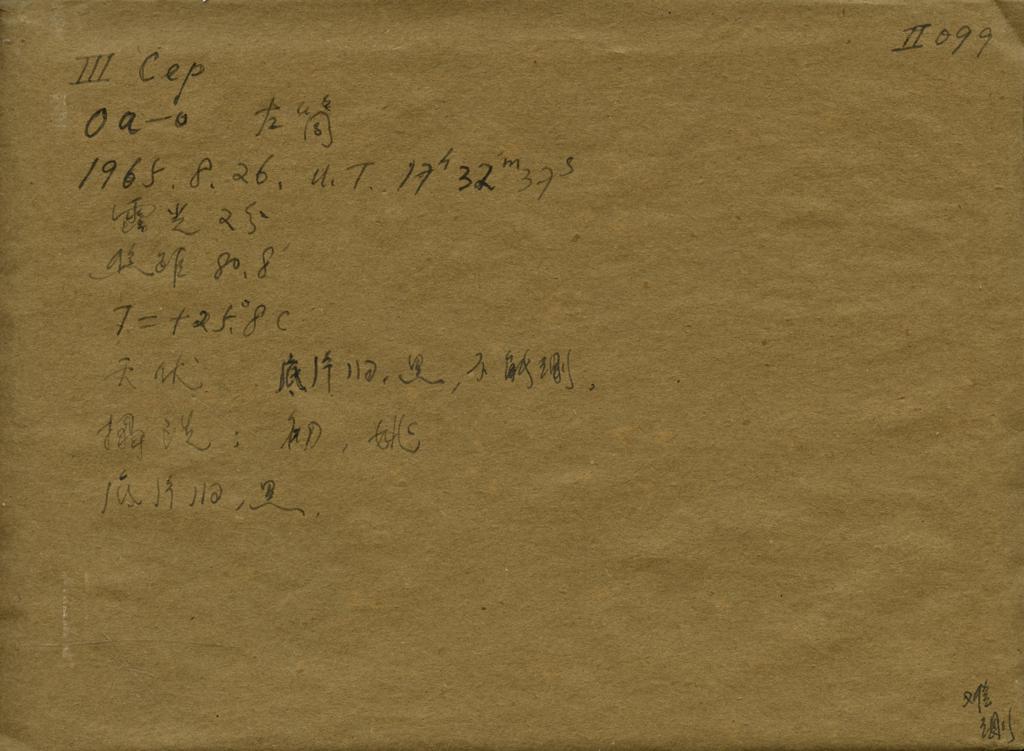 II 099
III Cep
Oa-o 左筒
1965.8.26. U.T. 17ʰ32ᵐ37ˢ
露光 2分
焦距 80.8
T=+25.°8C
天伏 底片旧,黑,不能测。
摄洗: 初,姚
底片旧,黑.
难
测